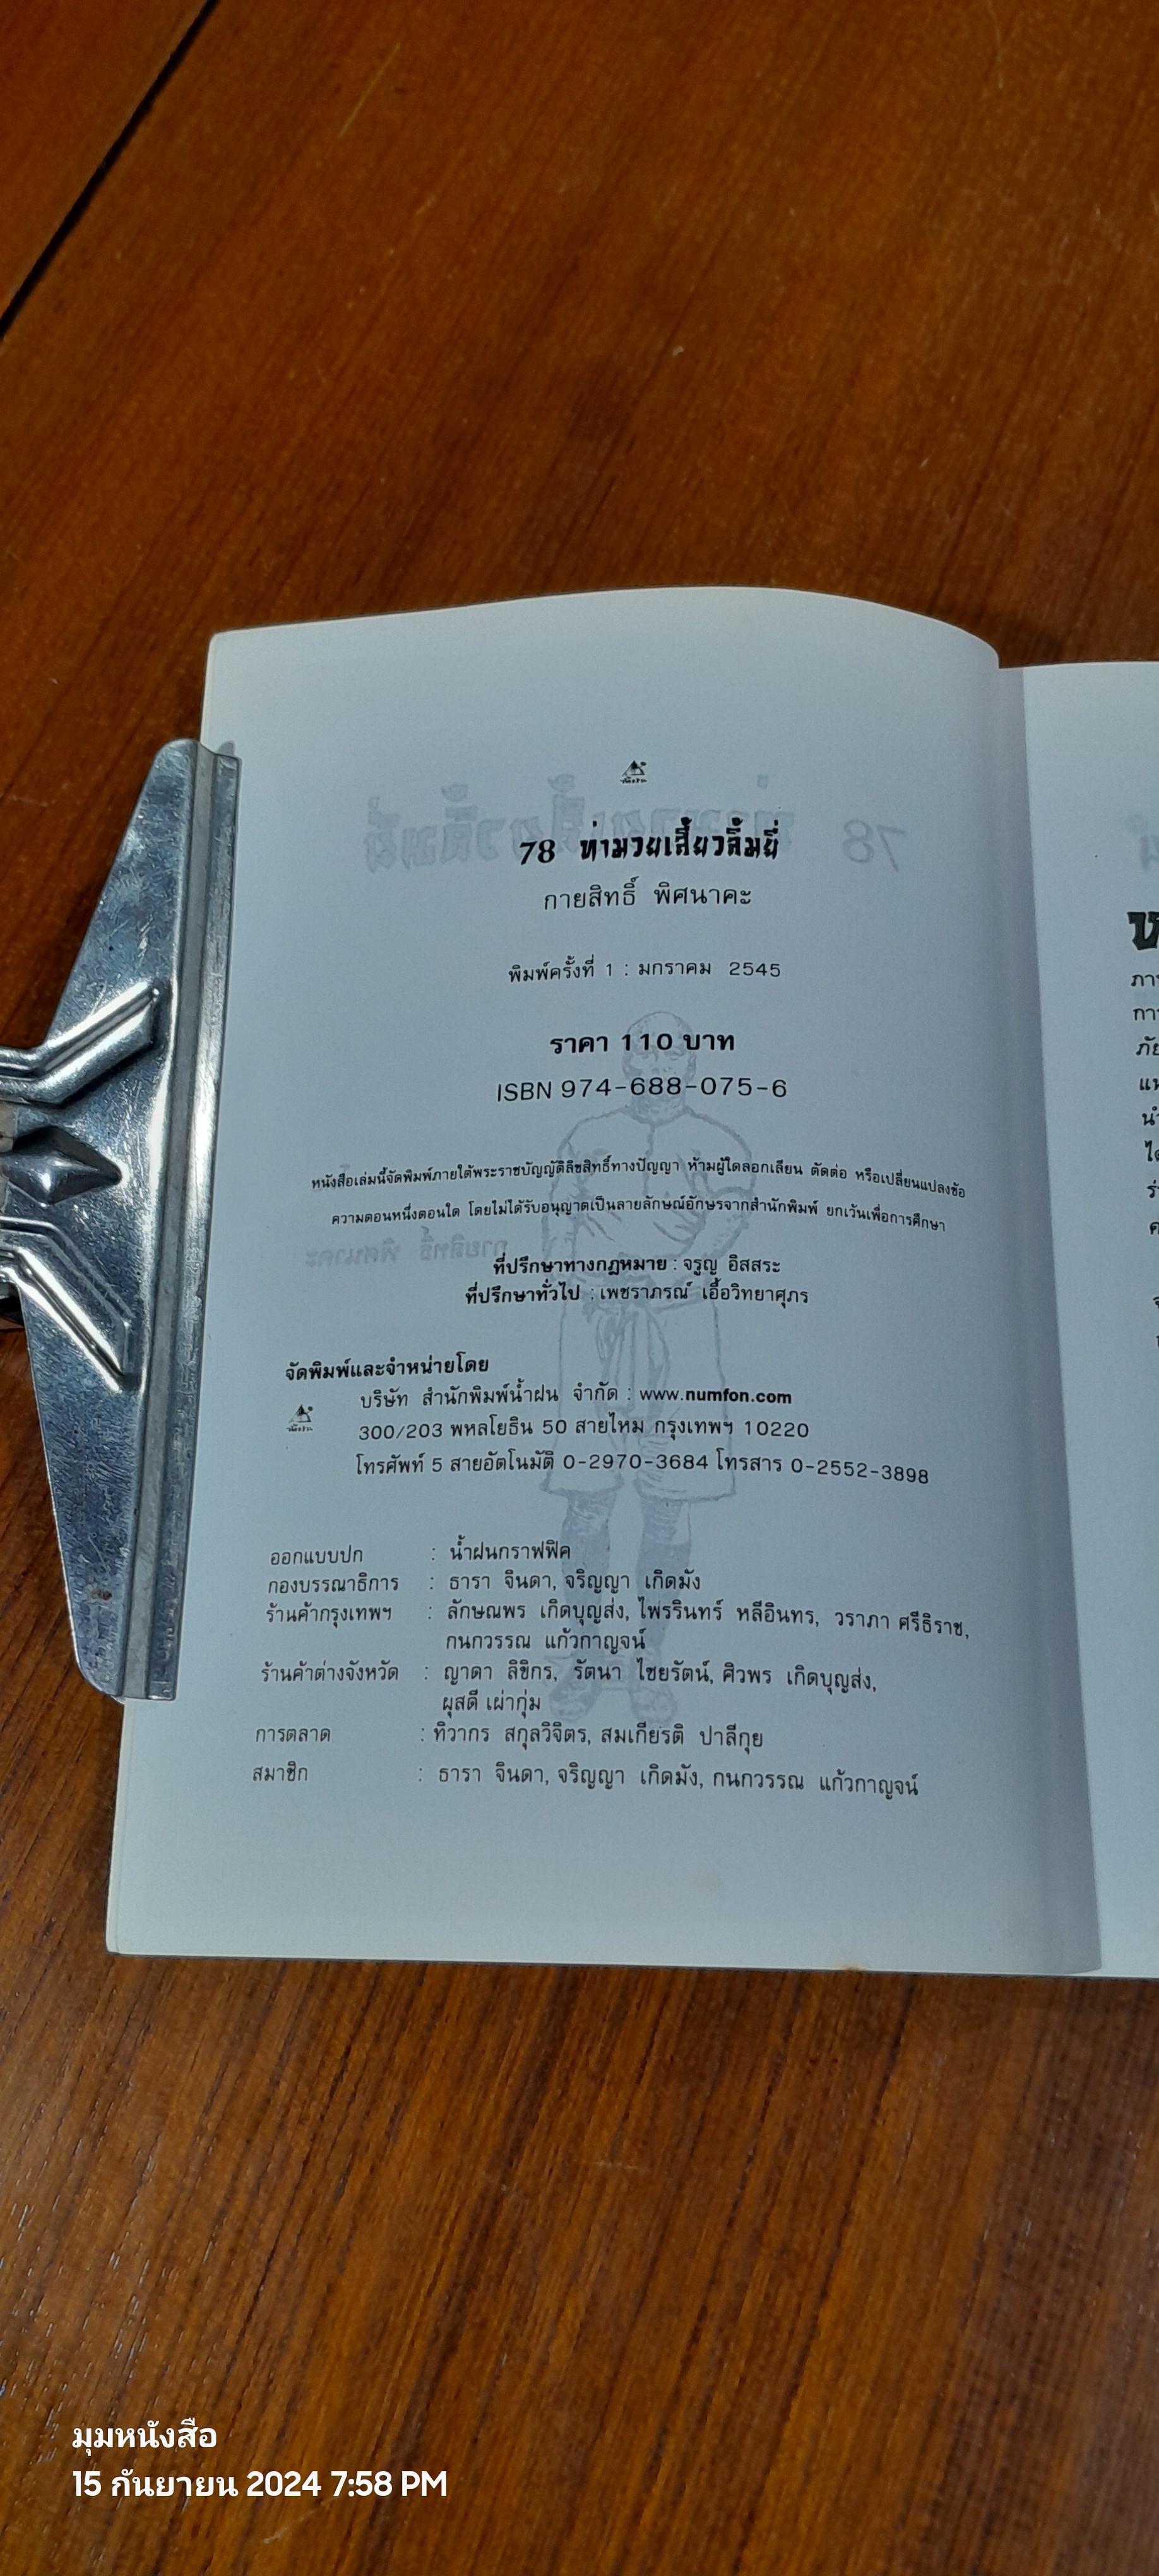 78 ท่ามวยเสี้ยวลิ้มยี่
กายสิทธิ์ พิศนาคะ
พิมพ์ครั้งที่ 1 : มกราคม 2545
ราคา 110 บาท
ISBN 974-688-075-6
หนังสือเล่มนี้จัดพิมพ์ภายใต้พระราชบัญญัติลิขสิทธิ์ทางปัญญา ห้ามผู้ใดลอกเลียน ตัดต่อ หรือเปลี่ยนแปลงข้อ
ความตอนหนึ่งตอนใด โดยไม่ได้รับอนุญาตเป็นลายลักษณ์อักษรจากสำนักพิมพ์ ยกเว้นเพื่อการศึกษา
ที่ปรึกษาทางกฎหมาย : จรูญ อิสสระ
ที่ปรึกษาทั่วไป : เพชราภรณ์ เอื้อวิทยาศุภร
จัดพิมพ์และจำหน่ายโดย
บริษัท สำนักพิมพ์น้ำฝน จำกัด : www.numfon.com
300/203 พหลโยธิน 50 สายไหม กรุงเทพฯ 10220
โทรศัพท์ 5 สายอัตโนมัติ 0-2970-3684 โทรสาร 0-2552-3898
ออกแบบปก : น้ำฝนกราฟฟิค
กองบรรณาธิการ : ธารา จินดา, จริญญา เกิดมัง
ร้านค้ากรุงเทพฯ : ลักษณพร เกิดบุญส่ง, ไพรรินทร์ หลีอินทร, วราภา ศรีธิราช,
กนกวรรณ แก้วกาญจน์
ร้านค้าต่างจังหวัด : ญาดา ลิขิกร, รัตนา ไชยรัตน์, ศิวพร เกิดบุญส่ง,
ผุสดี เผ่ากุ่ม
การตลาด : ทิวากร สกุลวิจิตร, สมเกียรติ ปาลีกุย
สมาชิก : ธารา จินดา, จริญญา เกิดมัง, กนกวรรณ แก้วกาญจน์
มุมหนังสือ
15 กันยายน 2024 7:58 PM